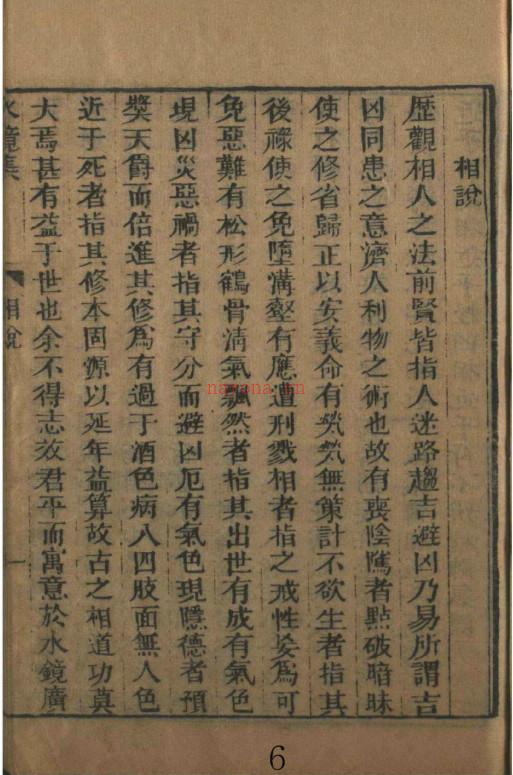 相說
歷觀相人之法前賢皆指人迷路趨吉避凶乃易所謂吉
凶同患之意濟人利物之術也故有喪陰隲者點破暗昧
使之修省歸正以安義命有煢煢無策計不欲生者指其
後祿使之免墮溝壑有應遭刑戮相者指之戒性姿為可
免惡難有松形鶴骨清氣飄然者指其出世有成有氣色
現凶災惡禍者指其守分而避凶厄有氣色現隱德者預
獎天爵而倍進其修為有過于酒色病入四肢面無人色
近于死者指其修本固源以延年益算故古之相道功莫
大焉甚有益于世也余不得志效君平而寓意於水鏡廣
水鏡集
相說
一
6